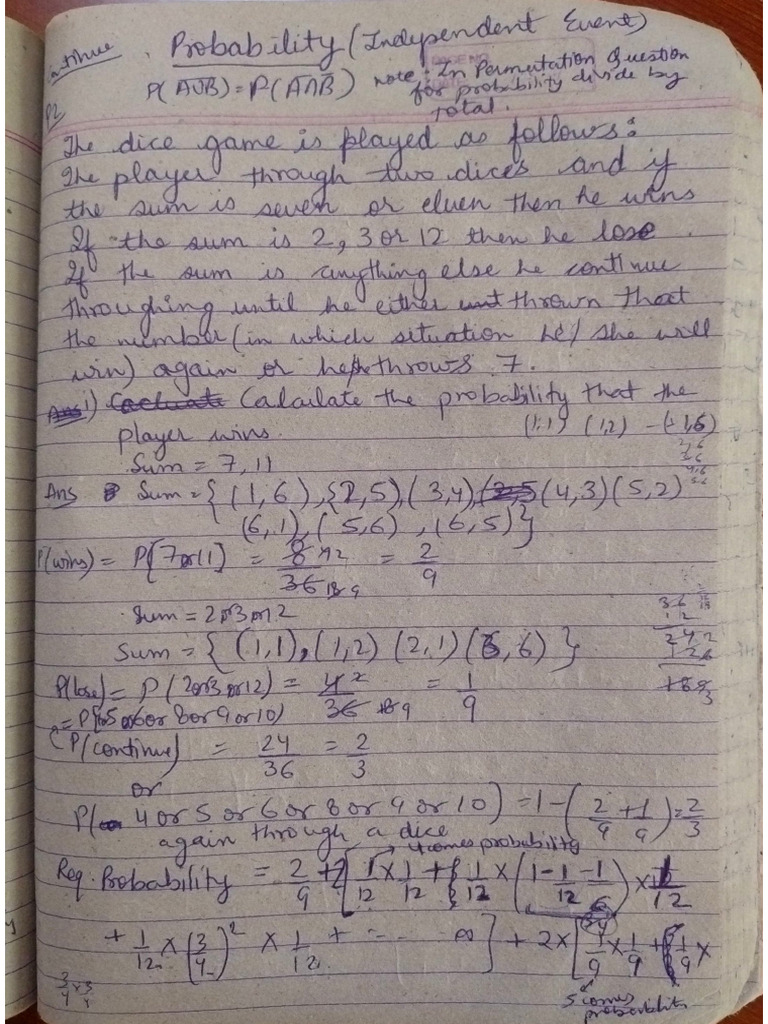 Probability (Independent Event)
P(A̅U̅B̅) = P(A̅∩B̅) note:- In Permutation Question
for probability divide by
total.
P2
The dice game is played as follows:
The player through two dices and if
the sum is seven or eluen then he wins
If the sum is 2, 3 or 12 then he lose
If the sum is anything else he continue
throughing until he either thrown that
the number (in which situation he/ she will
win) again or he/she throws 7.
i) Calculate the probability that the
player wins.
(1,1) (1,2) - (1,6)
Sum = 7, 11
Ans Sum = { (1,6), (2,5), (3,4), (4,3) (5,2)
(6,1), (5,6), (6,5)}
P(wins) = P[7or11] = 8/36 = 2/9
Sum = 2or3or12
Sum = { (1,1), (1,2) (2,1) (6,6) }
P(lose) = P(2or3or12) = 4/36 = 1/9
P(continue) = 24/36 = 2/3
or
P(4 or 5 or 6 or 8 or 9 or 10) = 1-(2/9 + 1/9) = 2/3
again through a dice
4 comes probability
Req. Probability = 2/9 + 2[1/12 x 1/12 + {1/12 x (1-1/12-1/6) x 1/12
+ 1/12 x (3/4)² x 1/12 + --- ∞] + 2x[1/9 x 1/9 + (1/9 x
3/4 x 3/4
5 comes
probability